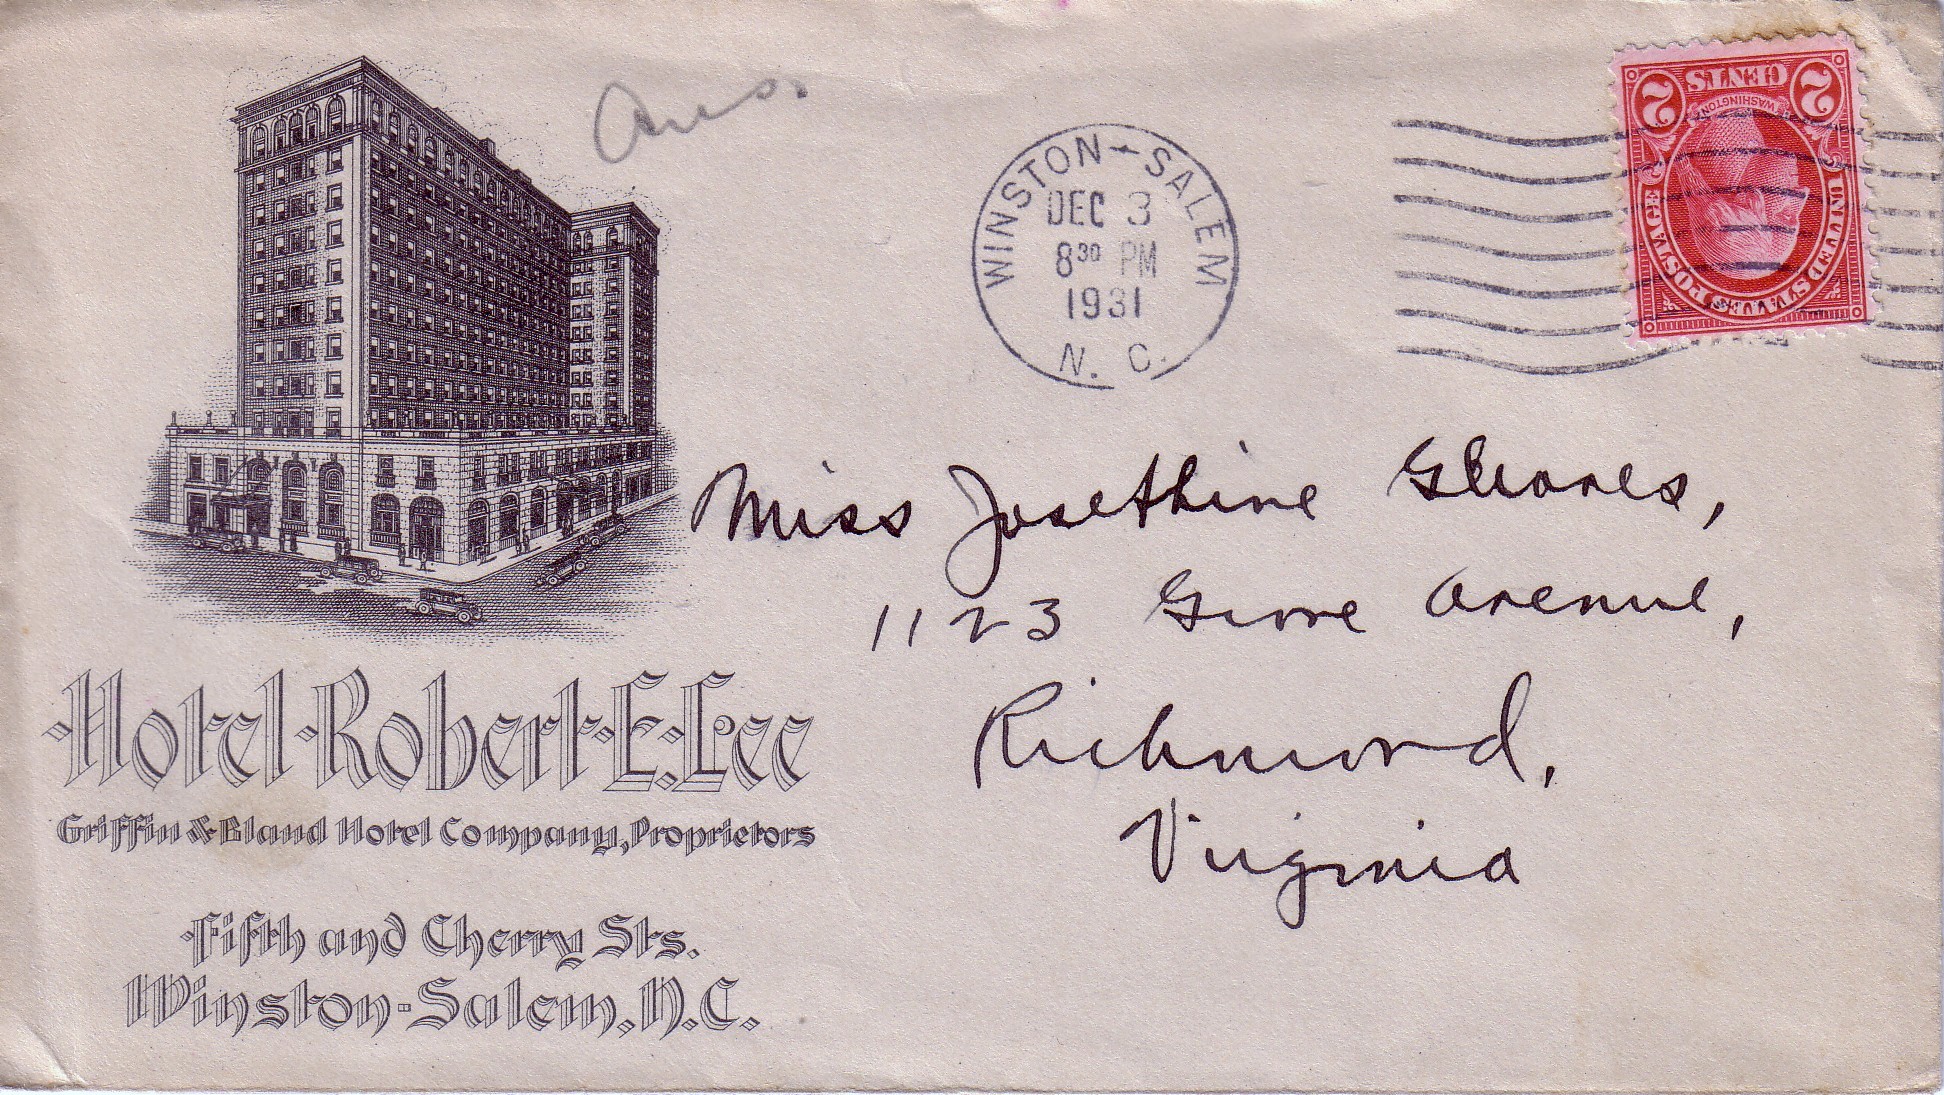 Ans.
WINSTON-SALEM
DEC 3
8³⁰ PM
1931
N. C.
UNITED STATES POSTAGE
WASHINGTON
2 CENTS 2
Miss Josephine
1123 Grove Avenue,
Richmond,
Virginia
Hotel Robert E. Lee
Griffin & Bland Hotel Company, Proprietors
Fifth and Cherry Sts.
Winston-Salem, N.C.